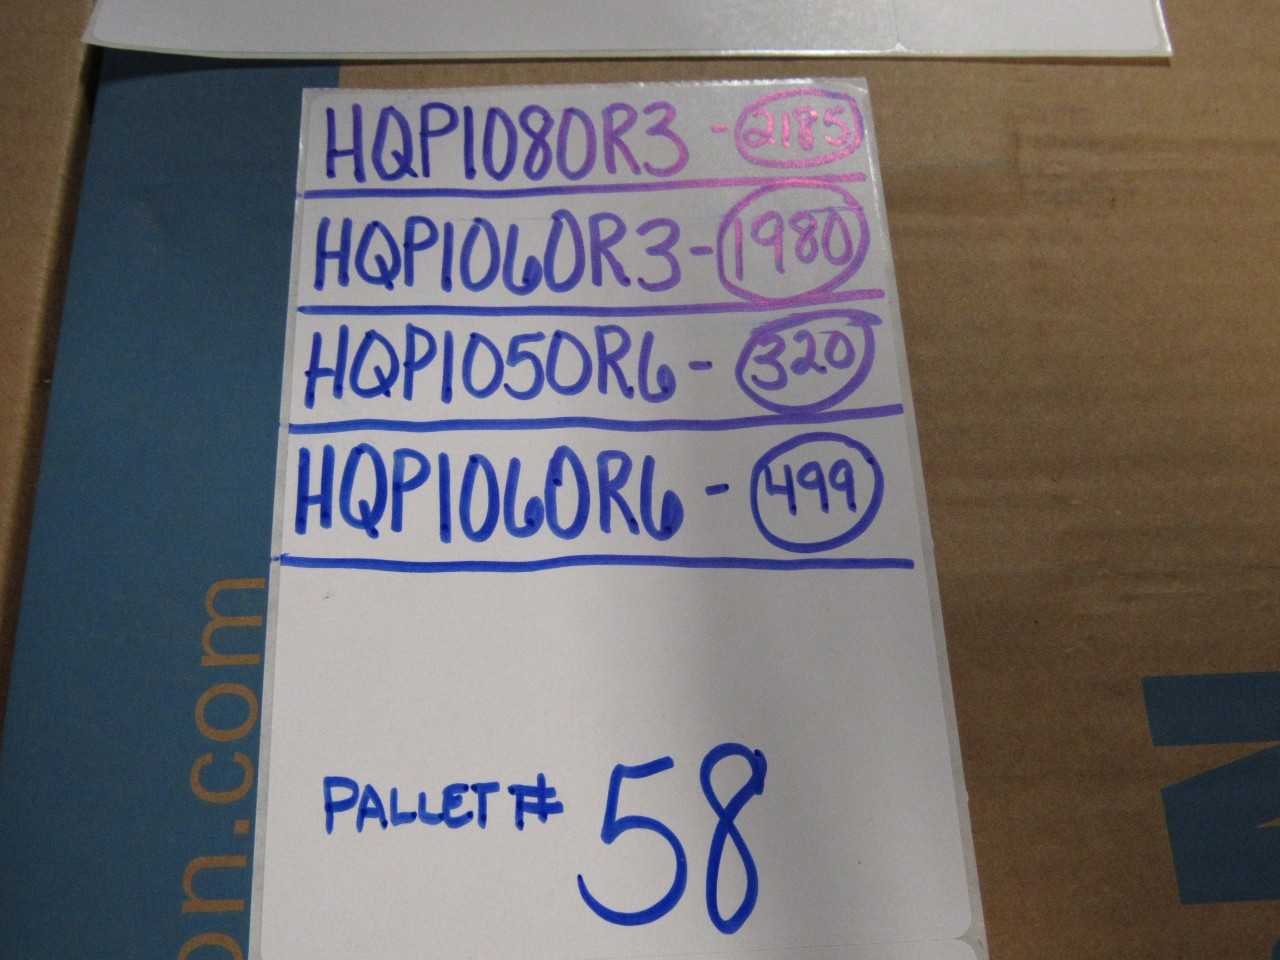 HQP1080R3 - 2185
HQP1060R3 - 1980
HQP1050R6 - 320
HQP1060R6 - 499
PALLET # 58
on.com